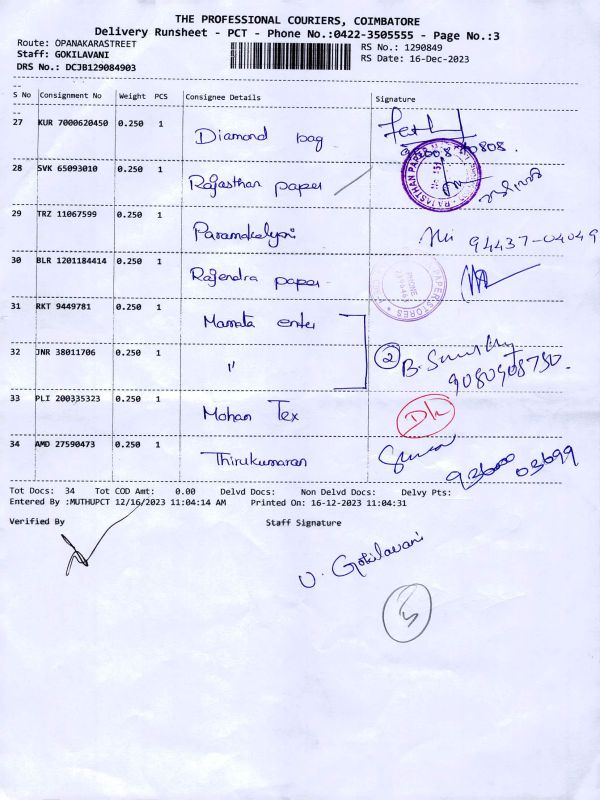 THE PROFESSIONAL COURIERS, COIMBATORE
Delivery Runsheet - PCT - Phone No.:0422-3505555 - Page No.:3
Route: OPANAKARASTREET
RS No.: 1290849
Staff: GOKILAVANI
RS Date: 16-Dec-2023
DRS No.: DCJB129084903
S No Consignment No Weight PCS Consignee Details Signature
27 KUR 7000620450 0.250 1 Diamond bag
28 SVK 65093010 0.250 1 Rajasthan paper
29 TRZ 11067599 0.250 1 Paramakalyani 94437-04049
30 BLR 1201184414 0.250 1 Rajendra paper
31 RKT 9449781 0.250 1 Mamata enter
32 JNR 38011706 0.250 1 " 2 9080908750.
33 PLI 200335323 0.250 1 Mohan Tex
34 AMD 27590473 0.250 1 Thirukumaran 936000 03699
Tot Docs: 34 Tot COD Amt: 0.00 Delvd Docs: Non Delvd Docs: Delvy Pts:
Entered By :MUTHUPCT 12/16/2023 11:04:14 AM Printed On: 16-12-2023 11:04:31
Verified By Staff Signature
U. Gokilavani